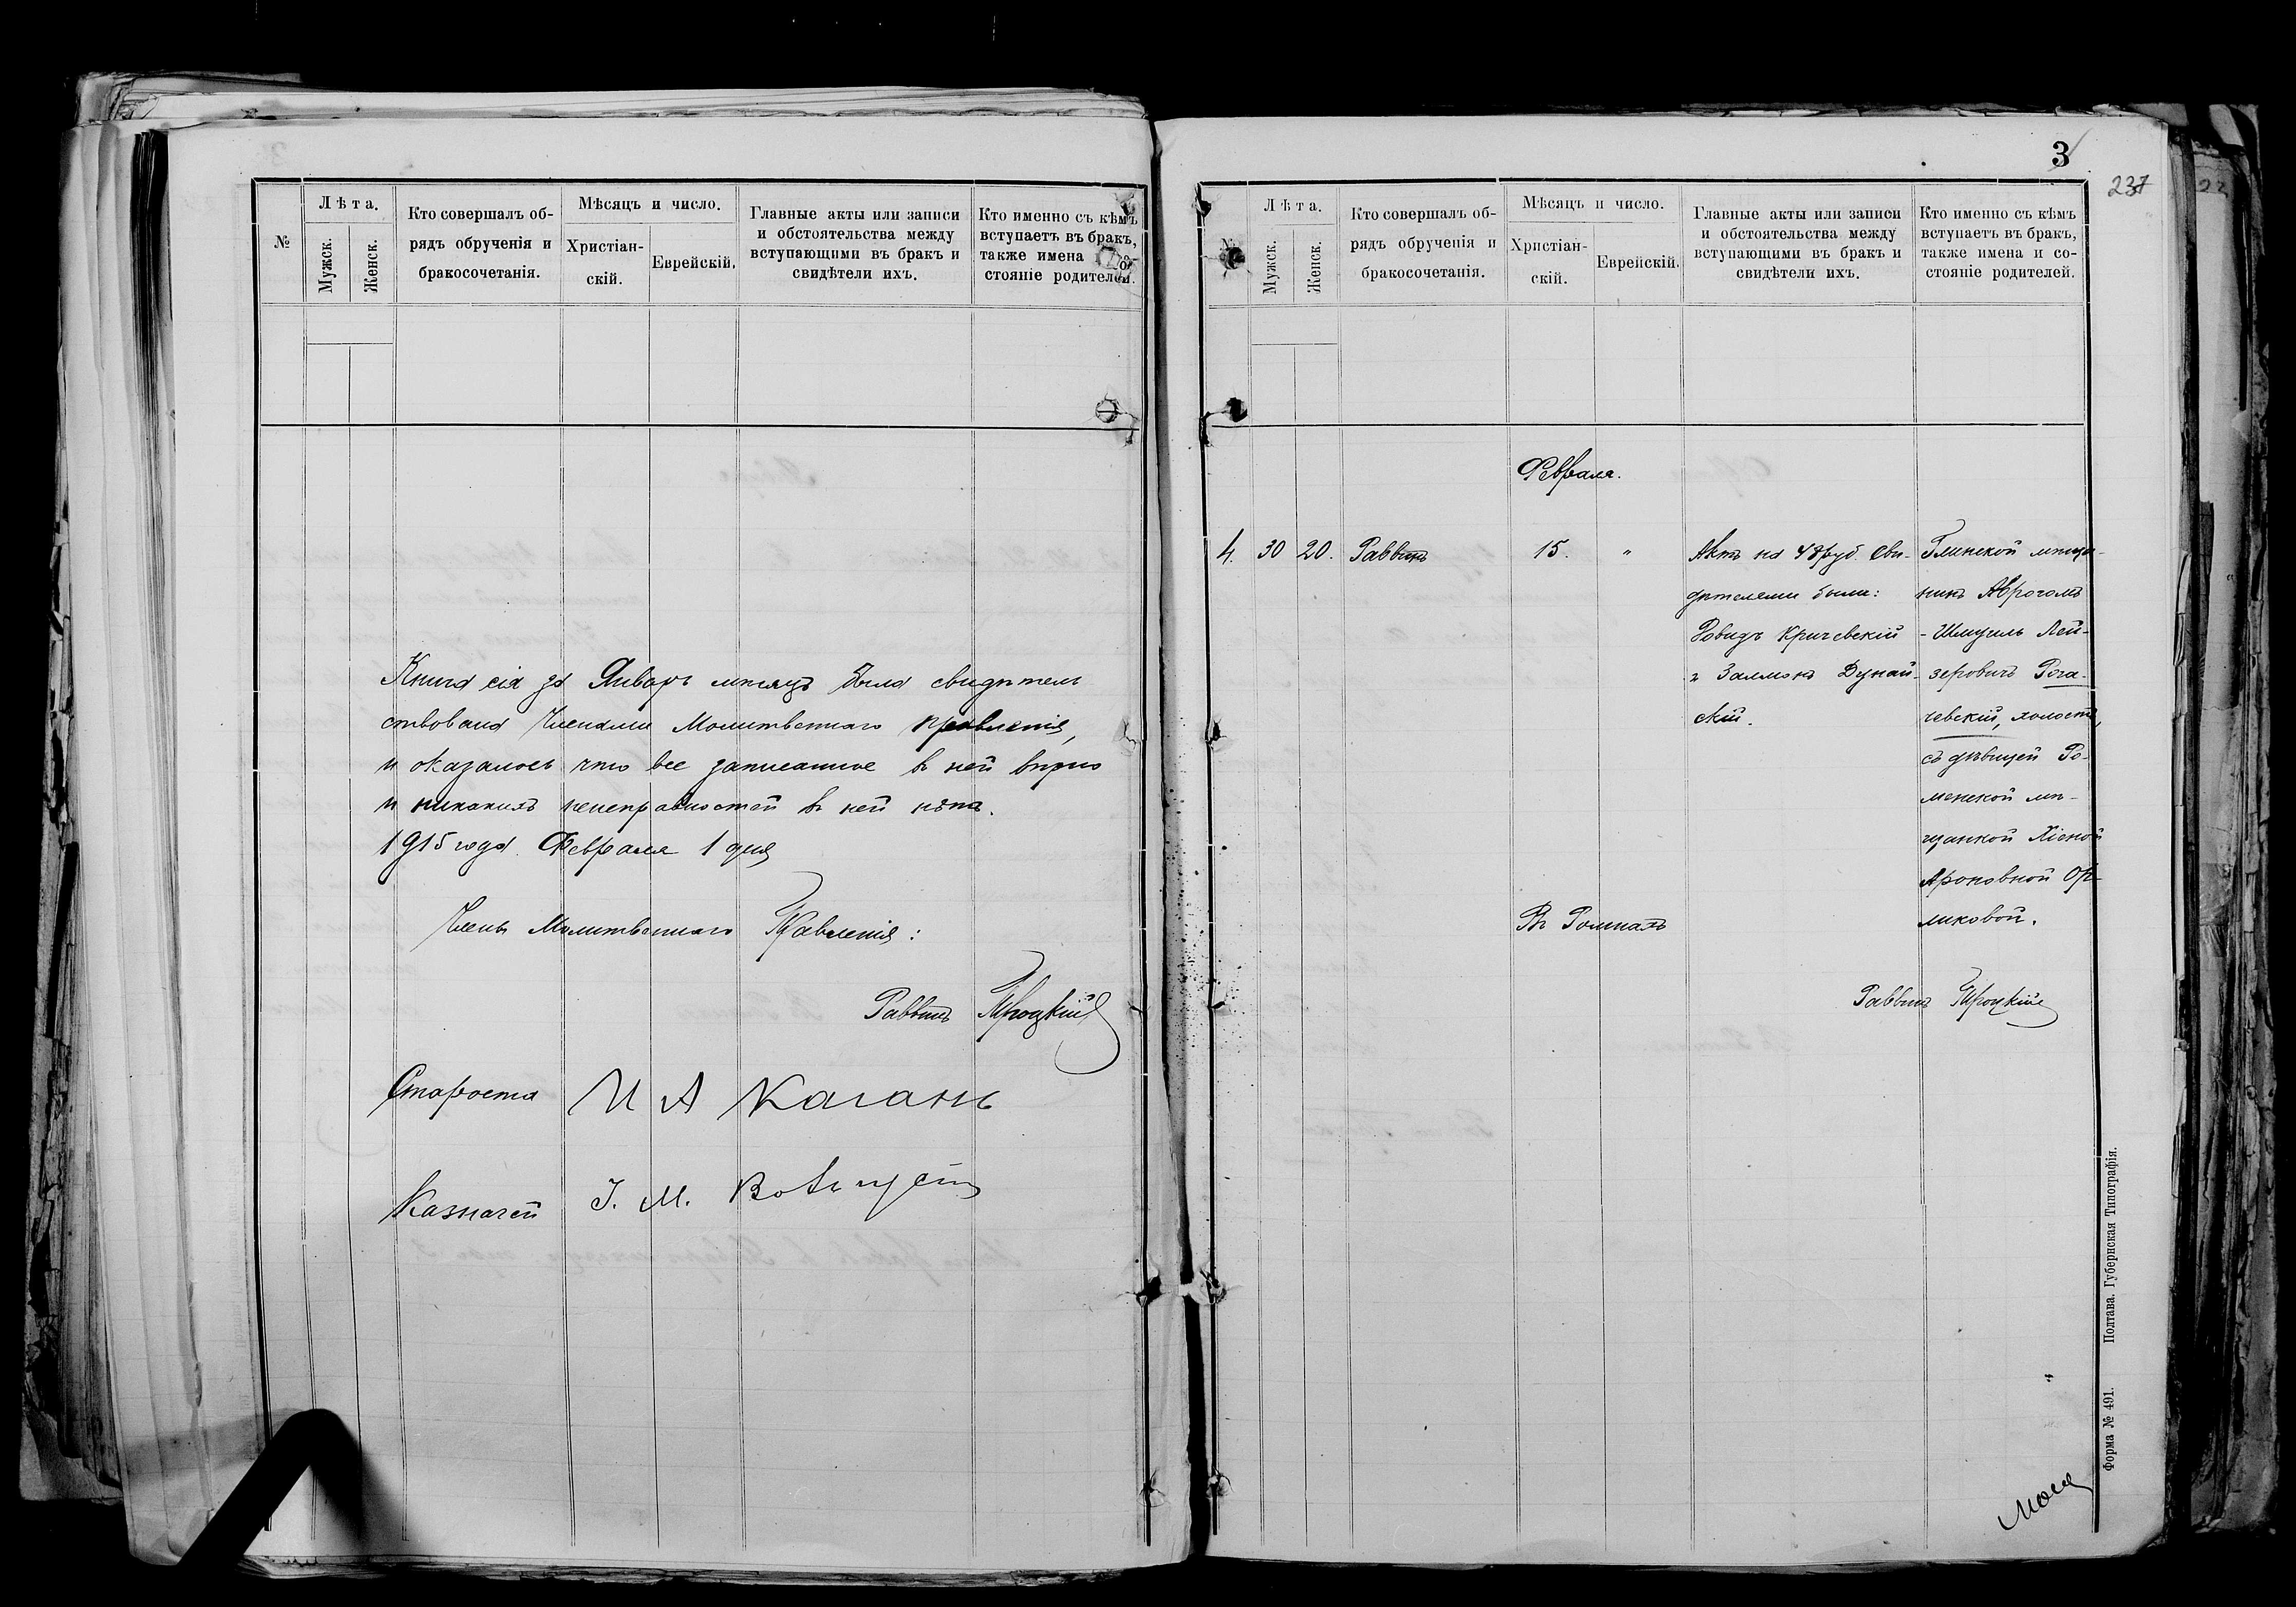 №
Лѣта.
Мужск.
Женск.
Кто совершалъ об-
рядъ обрученія и
бракосочетанія.
Мѣсяцъ и число.
Христіан-
скій.
Еврейскій.
Главные акты или записи
и обстоятельства между
вступающими въ бракъ и
свидѣтели ихъ.
Кто именно съ кѣмъ
вступаетъ въ бракъ,
также имена
стояніе родителей.
Книга сія за Январь мѣсяцъ была свидѣтель
ствована Членами Молитвеннаго Правленія,
и оказалось что все записанное въ ней вѣрно
и никакихъ неисправностей въ ней нѣтъ.
1915 года Февраля 1 дня
Члены Молитвеннаго Правленія:
Раввинъ Троцкій
Староста И А Каганъ
Казначей І. М.
3
237
22
Лѣта.
Мужск.
Женск.
Кто совершалъ об-
рядъ обрученія и
бракосочетанія.
Мѣсяцъ и число.
Христіан-
скій.
Еврейскій.
Главные акты или записи
и обстоятельства между
вступающими въ бракъ и
свидѣтели ихъ.
Кто именно съ кѣмъ
вступаетъ въ бракъ,
также имена и со-
стояніе родителей.
Февраля.
4. 30 20. Раввинъ 15. "
Актъ на 48 руб. Сви-
дѣтелями были:
Довидъ Кричевскій
и Залманъ Дунай-
скій.
Глинской мѣща-
нинъ Аврогомъ
-Шмуиль Лей-
зеровичъ Рога-
чевскій, холостъ,
съ дѣвицей Ро-
менской мѣ-
щанкой Хіеной
Ароновной Ор-
ликовой.
Въ Ромнахъ
Раввинъ Троцкій
Форма № 491. Полтава. Губернская Типографія.